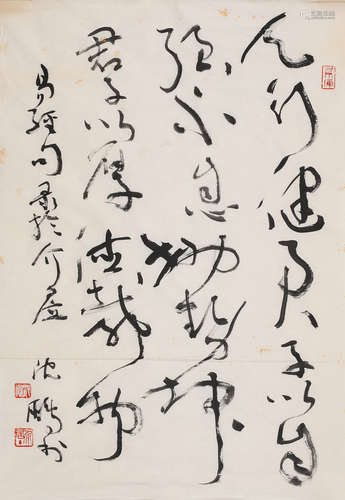 天行健君子以自
强不息地势坤
君子以厚德载物
易经句录于介居
沈鹏书